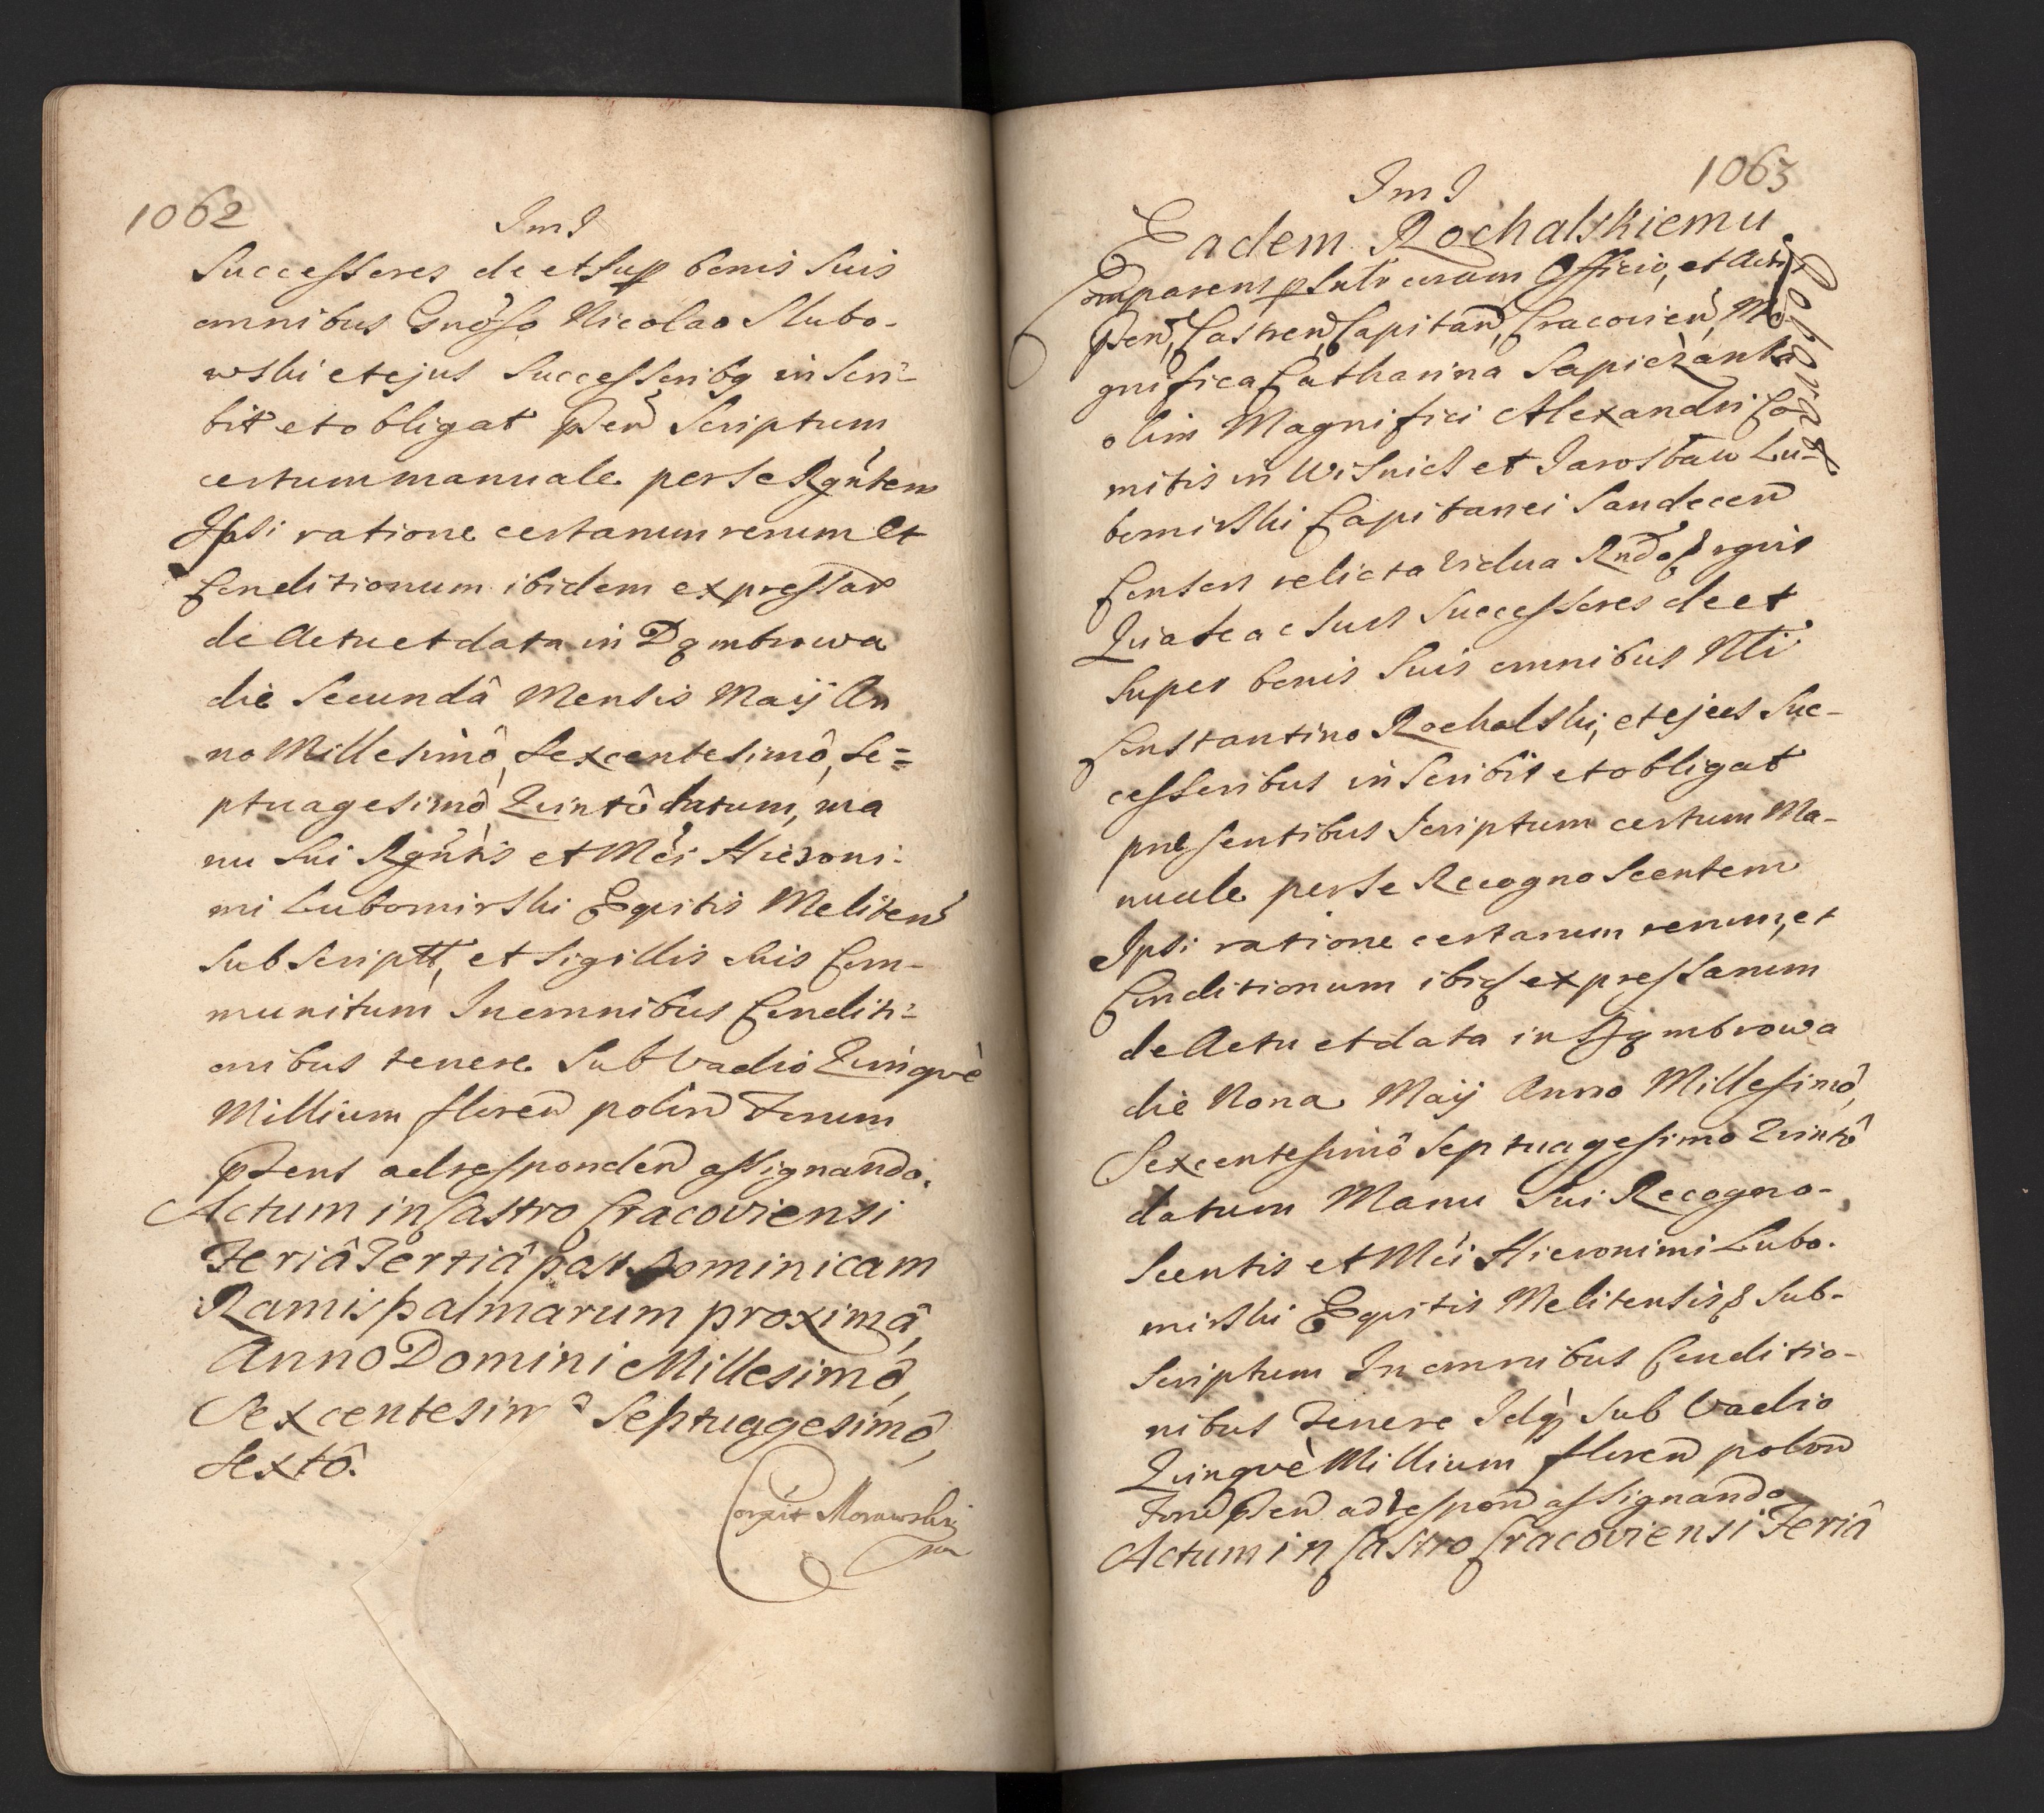 1062
ImI
Successores de et sup bonis suis
omnibus Gnoso Nicolao Slubo-
wski et ejus Successoribq inscri-
bit et obligat pden Scriptum
certum manuale per se Rgntem
Ipsi ratione certarum rerum et
Conditionum ibidem expressar
de Actu et data in Dąmbrowa
die Secundâ Mensis Maij An
no Millesimô, Sexcentesimô, Se=
ptuagesimô Quintô datum, ma
nu sui Rgntis et Mci Hieroni-
mi Lubomirski Eqvitis Meliten
Subscriptt, et sigillis suis Com-
munitum In omnibus Conditi-
onibus tenere Sub Vadio Qvinqvè
Millium floren polon Forum
pdens ad responden assignando.
Actum in Castro Cracoviensi
Feriâ Tertiâ post Dominicam
Ramispalmarum proximâ,
Anno Domini Millesimô,
Sexcentesimô Septuagesimô,
Sextô.
Correxit Morawski
1063
ImI
Eadem Rochalskiemu
Comparens psonlr coram Officio, et Actis
pden, Castren, Capitan, Cracovien, Ma
gnifica Catharina Sapiezanka
olim Magnifici Alexandri Co
mitis in Wisnicz et Jaroslaw Lu-
bomirski Capitanei Sandecen
Consors relicta vidua
Quia se ac suos Successores de et
Super bonis suis omnibus Nli
Constantino Rochalski, et ejus Suc-
cessoribus inscribit et obligat
præsentibus Scriptum certum Ma-
nuale per se Recognoscentem
Ipsi ratione certarum rerum, et
Conditionum ibid expressarum
de Actu et data in Dąmbrowa
die Nona Maij Anno Millesimô,
Sexcentesimô Septuagesimo Quintô
datum Manu sui Recogno-
scentis et Mci Hieronimi Lubo-
mirski Eqvitis Melitensis Sub-
scriptum In omnibus Conditio-
nibus Tenere Idq Sub Vadio
Qvinqvè Millium floren polon
For pden ad respon assignando
Actum in Castro Cracoviensi Feriâ